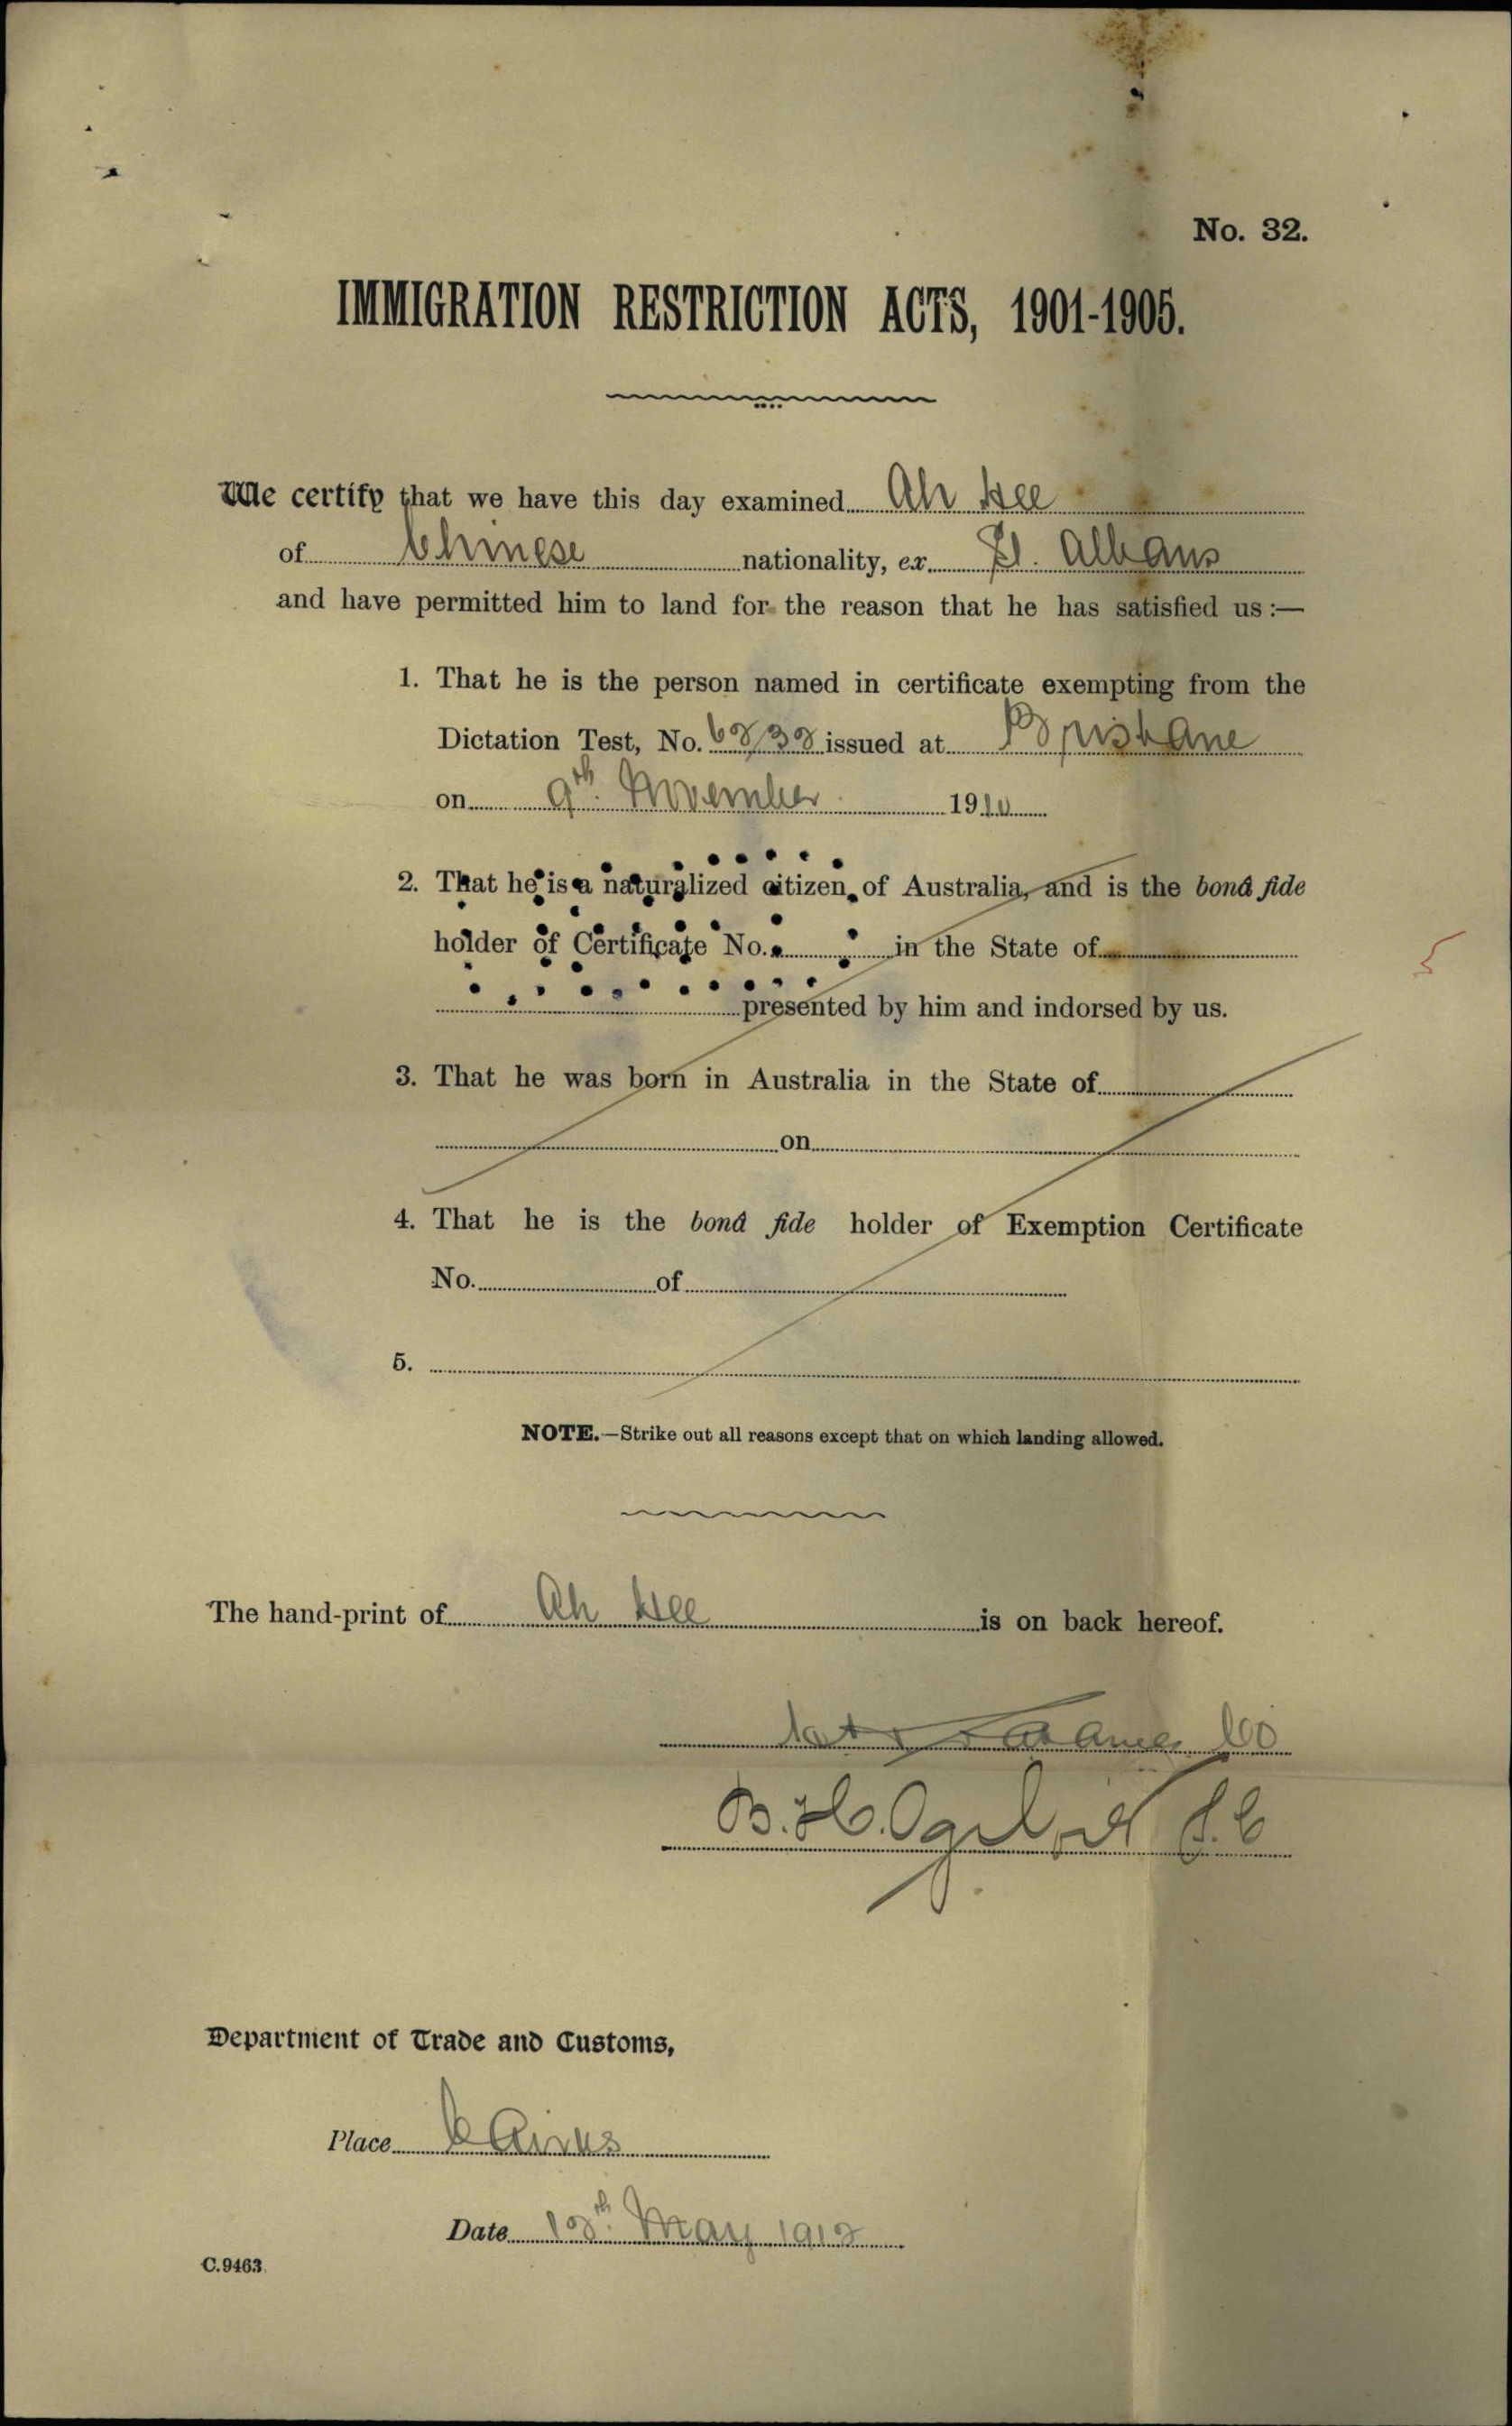 No. 32.
IMMIGRATION RESTRICTION ACTS, 1901-1905.
We certify that we have this day examined Ah Hee
of Chinese nationality, ex. St. Albans
and have permitted him to land for the reason that he has satisfied us:—
1. That he is the person named in certificate exempting from the
Dictation Test, No. issued at Brisbane
on 9th. November 1910
2. That he is a naturalized citizen of Australia, and is the bonâ fide
holder of Certificate No. in the State of
presented by him and indorsed by us.
3. That he was born in Australia in the State of
on
4. That he is the bonâ fide holder of Exemption Certificate
No. of
5.
NOTE.—Strike out all reasons except that on which landing allowed.
The hand-print of Ah Hee is on back hereof.
B. H. Ogilvie
Department of Trade and Customs,
Place Cairns
Date May 1912
C.9463.